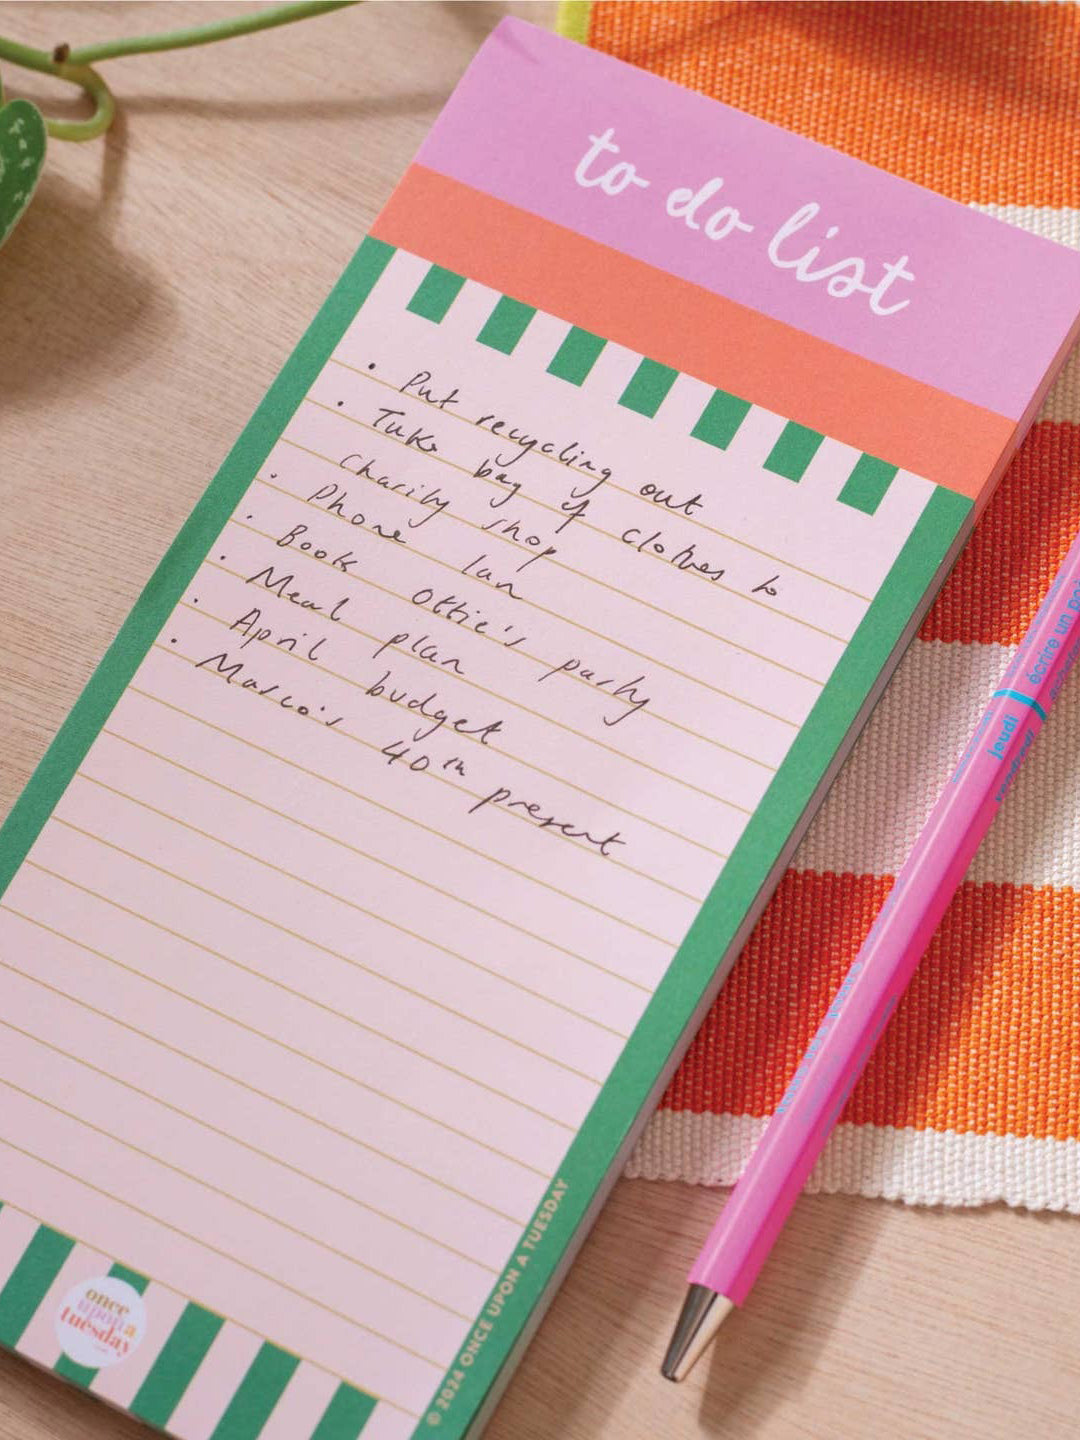 to do list
• Put recycling out
• Take bag of clothes to
charity shop
• Phone Ian
• Book Ottie's party
• Meal plan
• April budget
• Marco's 40th present
once
upon a
tuesday
© 2024 ONCE UPON A TUESDAY
jeudi
vendredi
écrire un